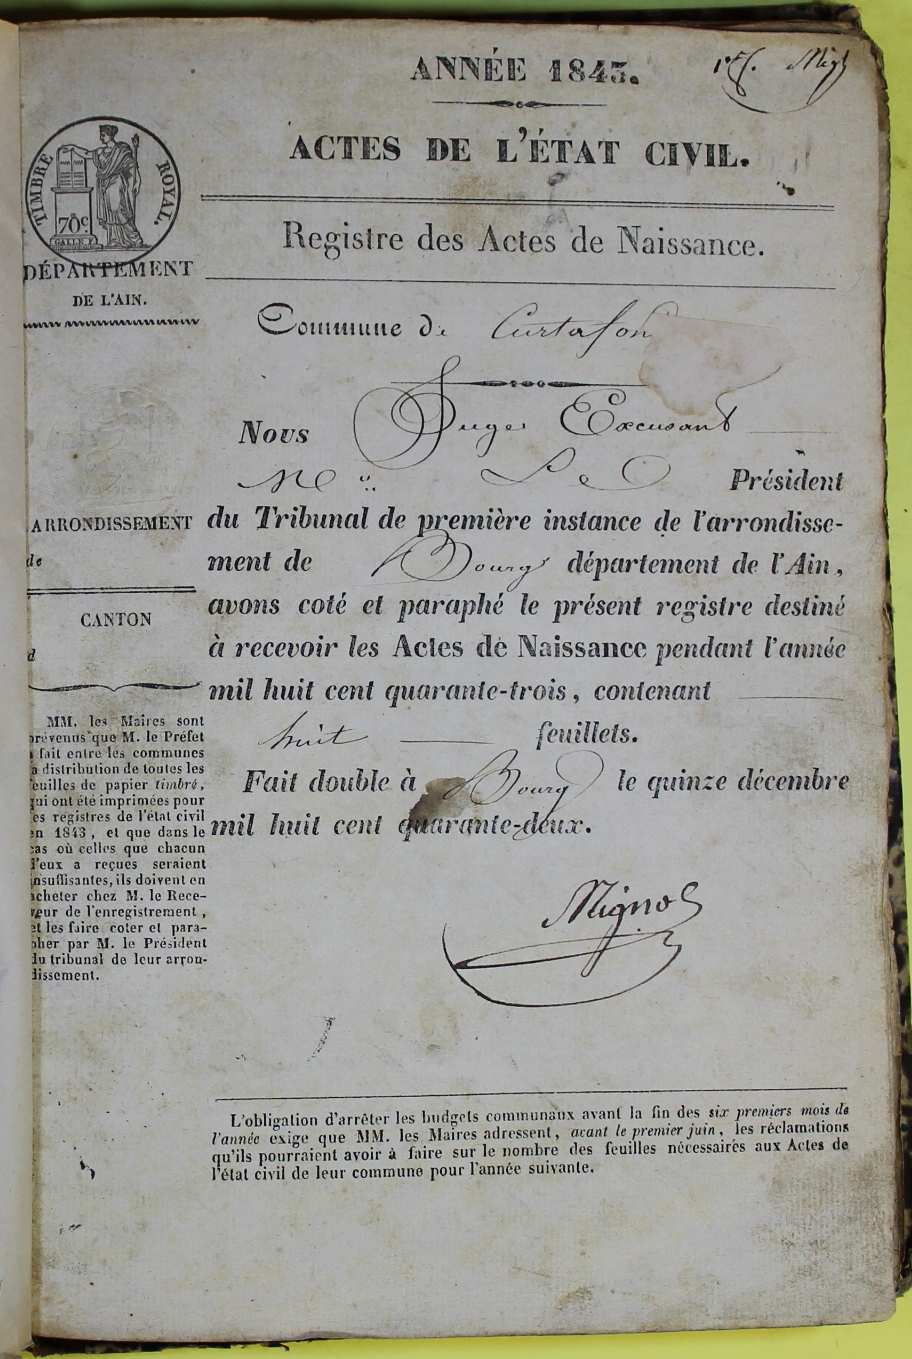 ANNÉE 1843.
1er f. Mig
ACTES DE L'ÉTAT CIVIL.
TIMBRE ROYAL.
70c
Registre des Actes de Naissance.
DÉPARTEMENT
DE L'AIN.
Commune de Curtafon
Nous Juge Excusant
Mr. Le Président
ARRONDISSEMENT
du Tribunal de première instance de l'arrondisse-
de
ment de Bourg département de l'Ain,
avons coté et paraphé le présent registre destiné
CANTON
à recevoir les Actes de Naissance pendant l'année
d
mil huit cent quarante-trois, contenant
huit feuillets.
Fait double à Bourg le quinze décembre
mil huit cent quarante-deux.
MM. les Maires sont
prévenus que M. le Préfet
a fait entre les communes
la distribution de toutes les
feuilles de papier timbré,
qui ont été imprimées pour
les registres de l'état civil
en 1843, et que dans le
cas où celles que chacun
d'eux a reçues seraient
insuffisantes, ils doivent en
acheter chez M. le Rece-
veur de l'enregistrement,
et les faire coter et para-
pher par M. le Président
du tribunal de leur arron-
dissement.
Mignot
L'obligation d'arrêter les budgets communaux avant la fin des six premiers mois de
l'année exige que MM. les Maires adressent, avant le premier juin, les réclamations
qu'ils pourraient avoir à faire sur le nombre des feuilles nécessaires aux Actes de
l'état civil de leur commune pour l'année suivante.